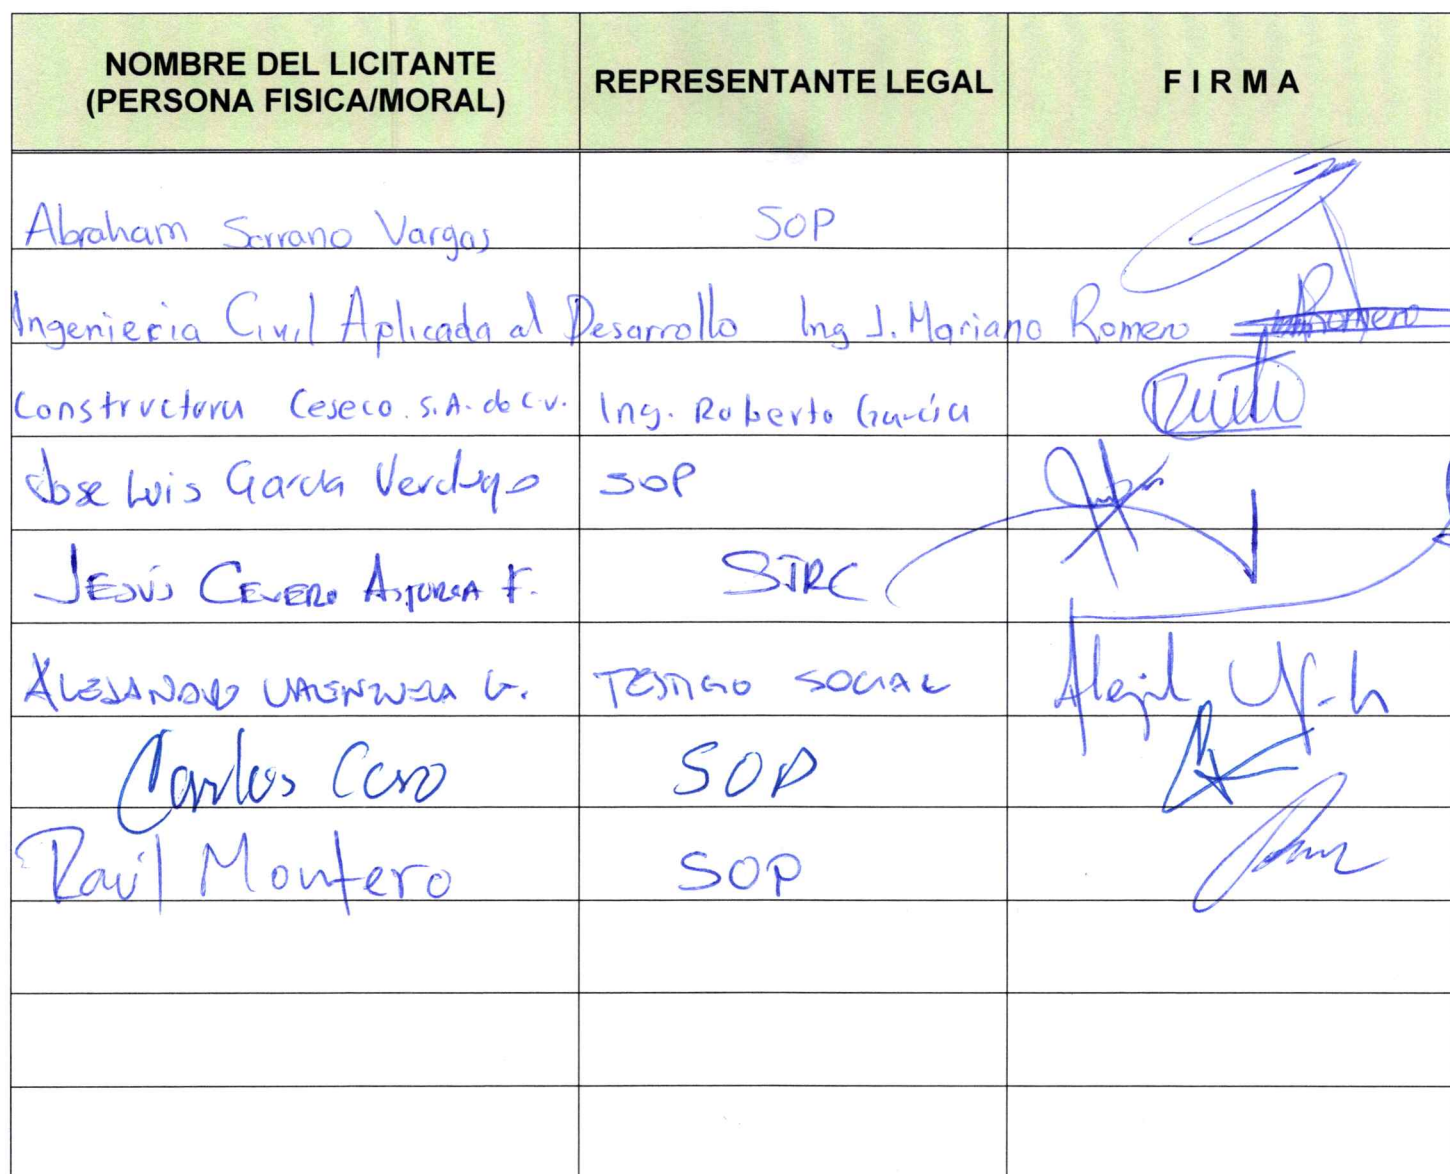 NOMBRE DEL LICITANTE
(PERSONA FISICA/MORAL)
REPRESENTANTE LEGAL
FIRMA
Abraham Serrano Vargas SOP
Ingenieria Civil Aplicada al Desarrollo Ing J. Mariano Romero Romero
Constructora Ceseco. S.A. de C.V. Ing. Roberto García
Jose Luis Garcia Verdugo SOP
JESÚS CEVERO ASTORGA F. STRC
ALEJANDRO VALENZUELA G. TESTIGO SOCIAL
Carlos Caro SOP
Raúl Montero SOP